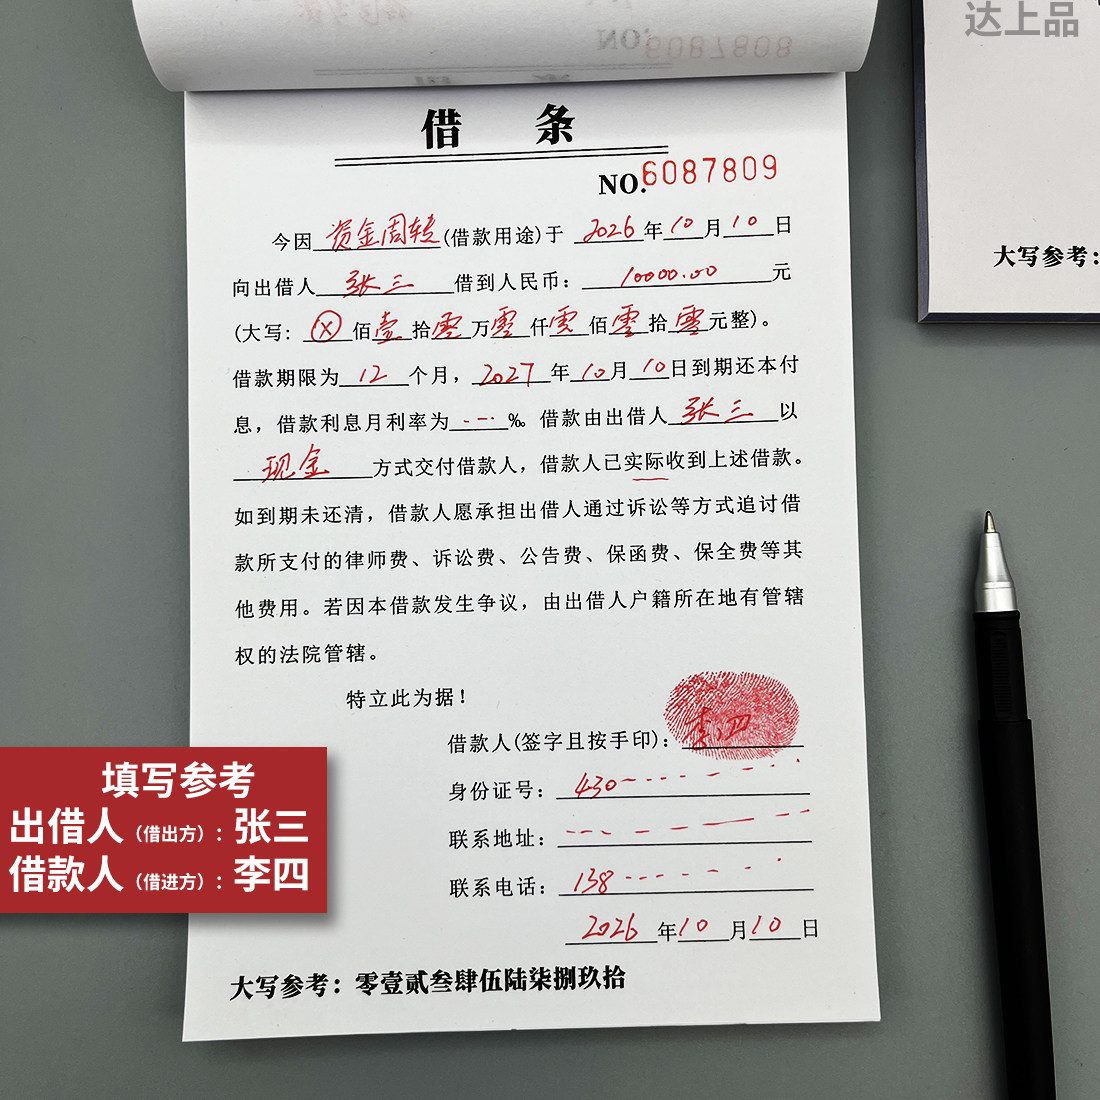 达上品
NO.6087808
借 条
NO.6087809
今因资金周转(借款用途)于 2026年10月10日
向出借人张三借到人民币：10000.00元
(大写：ⓧ佰壹拾零万零仟零佰零拾零元整)。
借款期限为12个月，2027年10月10日到期还本付
息，借款利息月利率为---‰。借款由出借人张三以
现金方式交付借款人，借款人已实际收到上述借款。
如到期未还清，借款人愿承担出借人通过诉讼等方式追讨借
款所支付的律师费、诉讼费、公告费、保函费、保全费等其
他费用。若因本借款发生争议，由出借人户籍所在地有管辖
权的法院管辖。
特立此为据！
借款人(签字且按手印)：李四
身份证号：430
联系地址：
联系电话：138
2026年10月10日
大写参考：零壹贰叁肆伍陆柒捌玖拾
大写参考：
填写参考
出借人（借出方）：张三
借款人（借进方）：李四